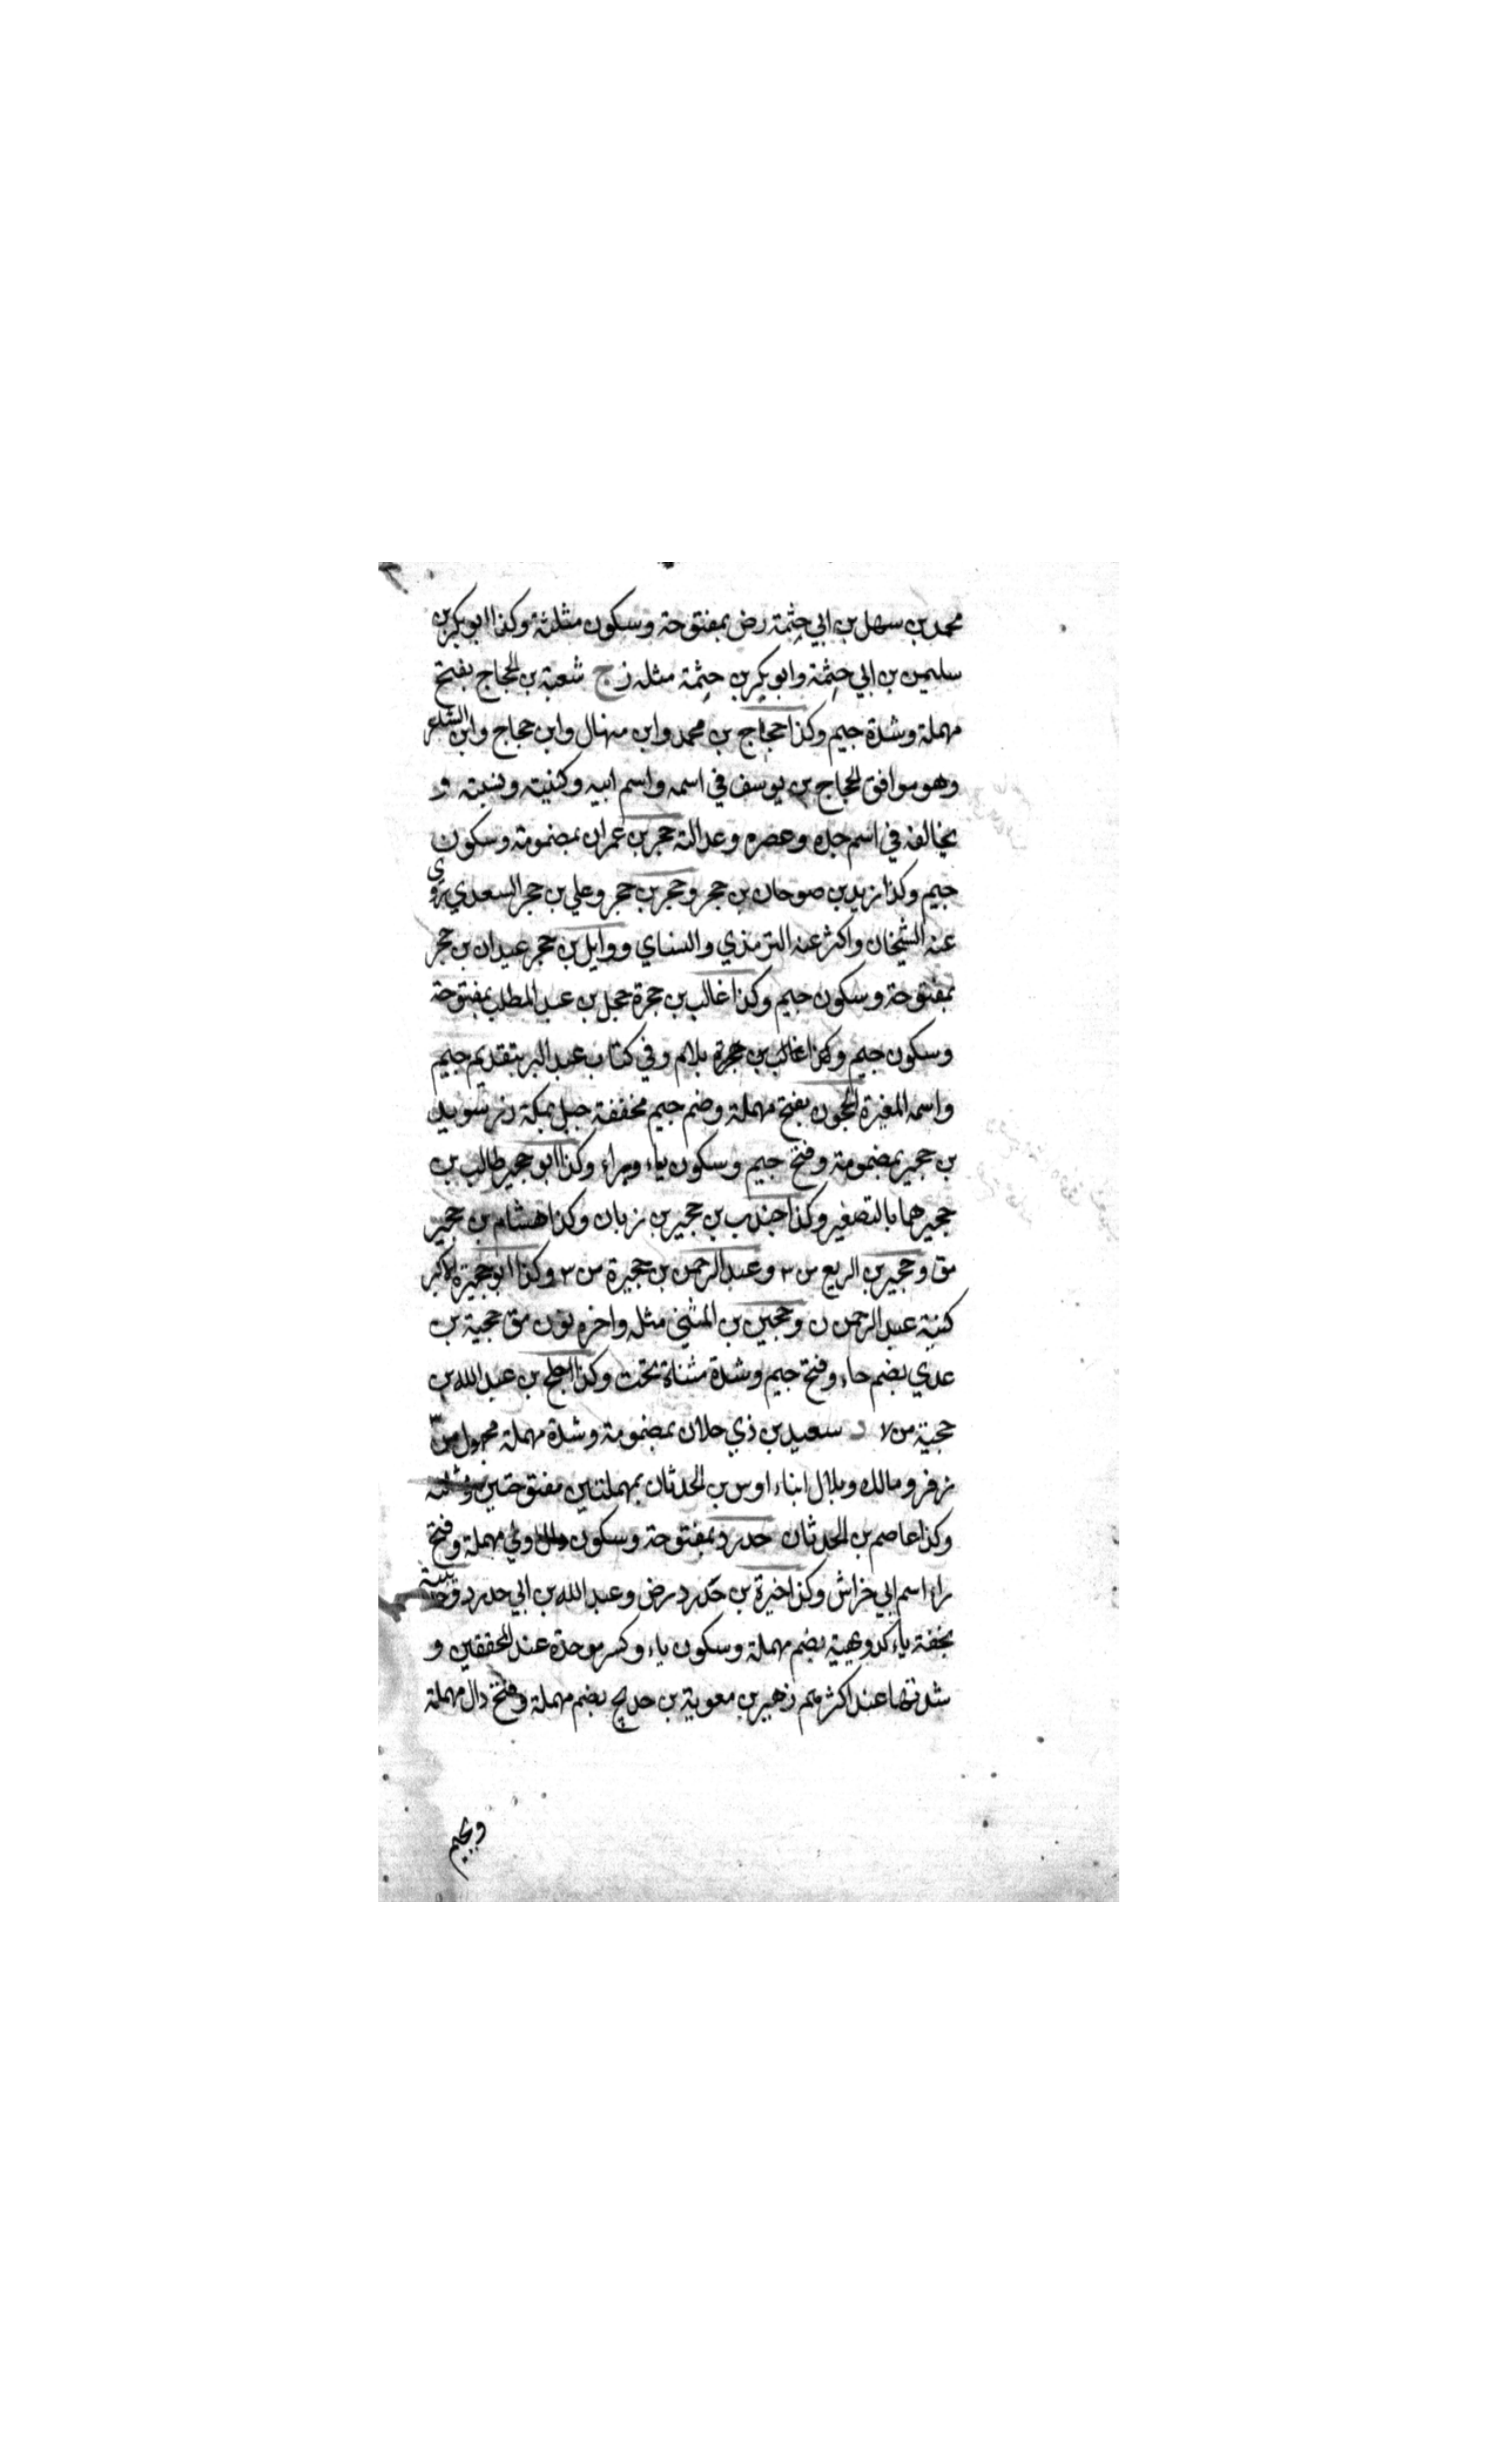 محمد بن سهل بن ابي حثمة رض بمفتوحة وسكون مثلثة وكذا ابو بكر بن
سليمن بن ابي حثمة وابو بكر بن حثمة مثله ز ج شعبة بن الحجاج بفتح
مهملة وشدة جيم وكذا حجاج بن محمد وابن منهال وابن حجاج وابن الشاعر
وهو موافق الحجاج بن يوسف في اسمه واسم ابيه وكنيته ونسبته و
يخالفه في اسم جده وعصره وعدالته حجر بن عمران بمضمومة وسكون
جيم وكذا زيد بن صوحان بن حجر وحجر بن حجر وعلي بن حجر السعدي روى
عنه الشيخان واكثر عنه الترمذي والنساي ووايل بن حجر عيدان بن حجر
بمفتوحة وسكون جيم وكذا غالب بن حجرة حجل بن عبد المطلب بمفتوحة
وسكون جيم وكذا غالب بن حجرة بلام وفي كتاب عبد البر بتقديم جيم
واسمه المغيرة الحجون بفتح مهملة وضم جيم مخففة جبل بمكة سويد
بن حجير بمضمومة وفتح جيم وسكون ياء وبراء وكذا ابو حجير طالب بن
حجير هما بالتصغير وكذا جندب بن حجير بن زبان وكذا هشام بن حجير
مق وحجير بن الربيع س ٣ وعبد الرحمن بن حجيرة س ٣ وكذا ابو حجيرة الاكبر
كنية عبد الرحمن ن وحجين بن المثنى مثله واخره نون مق حجية بن
عدي بضم حاء وفتح جيم وشدة مثناة تحت وكذا اجلح بن عبد الله بن
حجية من لا د سعيد بن ذي حلان بمضمومة وشدة مهملة مجهول من
زفر ومالك وبلال ابناء اوس بن الحدثان بمهملتين مفتوحتين
وكذا عاصم بن الحدثان حدرد بمفتوحة وسكون دال اولي مهملة وفتح
راء اسم ابي خراش وكذا خيرة بن حدرد رض وعبد الله بن ابي حدرد
بخفة ياء بضم مهملة وسكون ياء وكسر موحدة عند المحققين و
شدتها عند اكثرهم زهير بن معوية بن حديج بضم مهملة وفتح دال مهملة
وبجيم